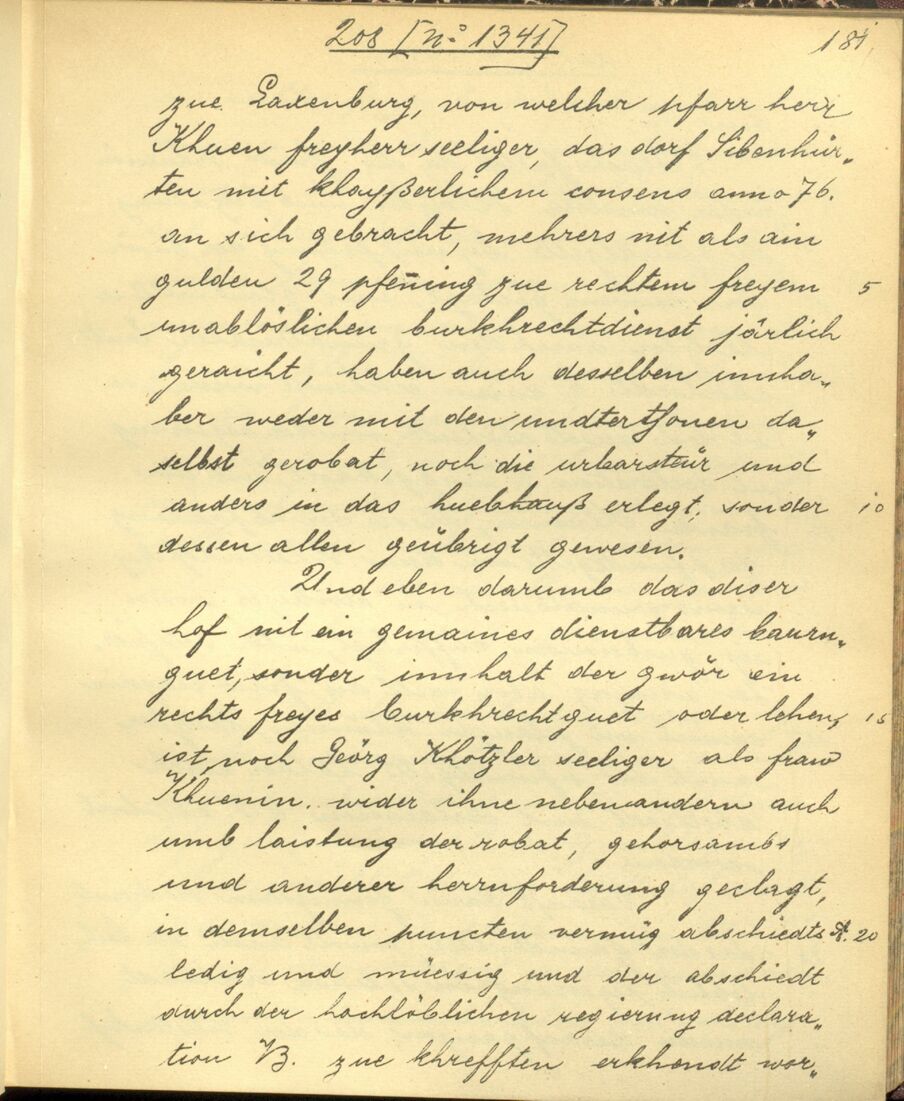 208 [nº 1341] 181,
zue Laxenburg, von welcher pfarr herr
Khuen freyherr seeliger, das dorf Sibenhür„
ten mit khayßerlichem consens anno 76.
an sich gebracht, mehrers nit als ain
gulden 29 pfen̄ing zue rechtem freyem 5
unablöslichen burkhrechtdienst järlich
geraicht, haben auch desselben innha„
ber weder mit den undterthonen da„
selbst gerobat, noch die urbarsteür und
anders in das huebhauß erlegt, sonder 10
dessen allen geübrigt gewesen.
Und eben darumb das diser
hof nit ein gemaines dienstbares baurn„
guet, sonder innhalt der gwör ein
rechts freyes burkhrechtguet oder lehen, 15
ist, noch Geörg Khötzler seeliger als fraw
Khuenin. wider ihne neben andern auch
umb laistung der robat, gehorsambs
und anderer herrnforderung geclagt,
in demselben puncten vermüg abschiedts A. 20
ledig und müessig und der abschiedt
durch der hochlöblichen regierung declara„
tion B. zue khrefften erkhendt wor„